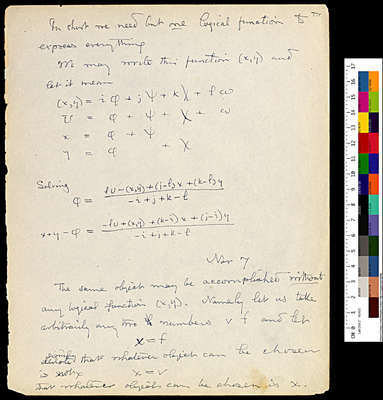 In short we need but one logical function to
express everything
We may write this function (x,y) and
let it mean
(x,y) = i φ + j ψ + k χ + l ω
U = φ + ψ + χ + ω
x = φ + ψ
y = φ + χ
Solving
φ = lU-(x,y)+(j-l)x+(k-l)y
-i+j+k-l
x+y-φ = -lU+(x,y)+(k-i)x+(j-i)y
-i+j+k-l
Nov 7
The same object may be accomplished without
any logical function (x,y). Namely let us take
arbitrarily any two numbers v f and let
x = f
denote that whatever object can be chosen
is not x
x = v
that whatever object can be chosen is x.